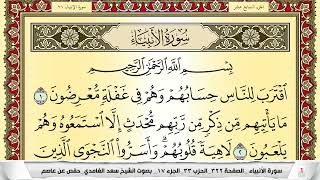 سُورَةُ الأَنبِيَاءِ
بِسْمِ اللَّهِ الرَّحْمَٰنِ الرَّحِيمِ
اقْتَرَبَ لِلنَّاسِ حِسَابُهُمْ وَهُمْ فِي غَفْلَةٍ مُّعْرِضُونَ ١
مَا يَأْتِيهِم مِّن ذِكْرٍ مِّن رَّبِّهِم مُّحْدَثٍ إِلَّا اسْتَمَعُوهُ وَهُمْ
يَلْعَبُونَ ٢ لَاهِيَةً قُلُوبُهُمْ ۗ وَأَسَرُّوا النَّجْوَى الَّذِينَ
سورة الأنبياء _ الصفحة ٣٢٢ _ الحزب ٣٣ _ الجزء ١٧ _ بصوت الشيخ سعد الغامدي _ حفص عن عاصم